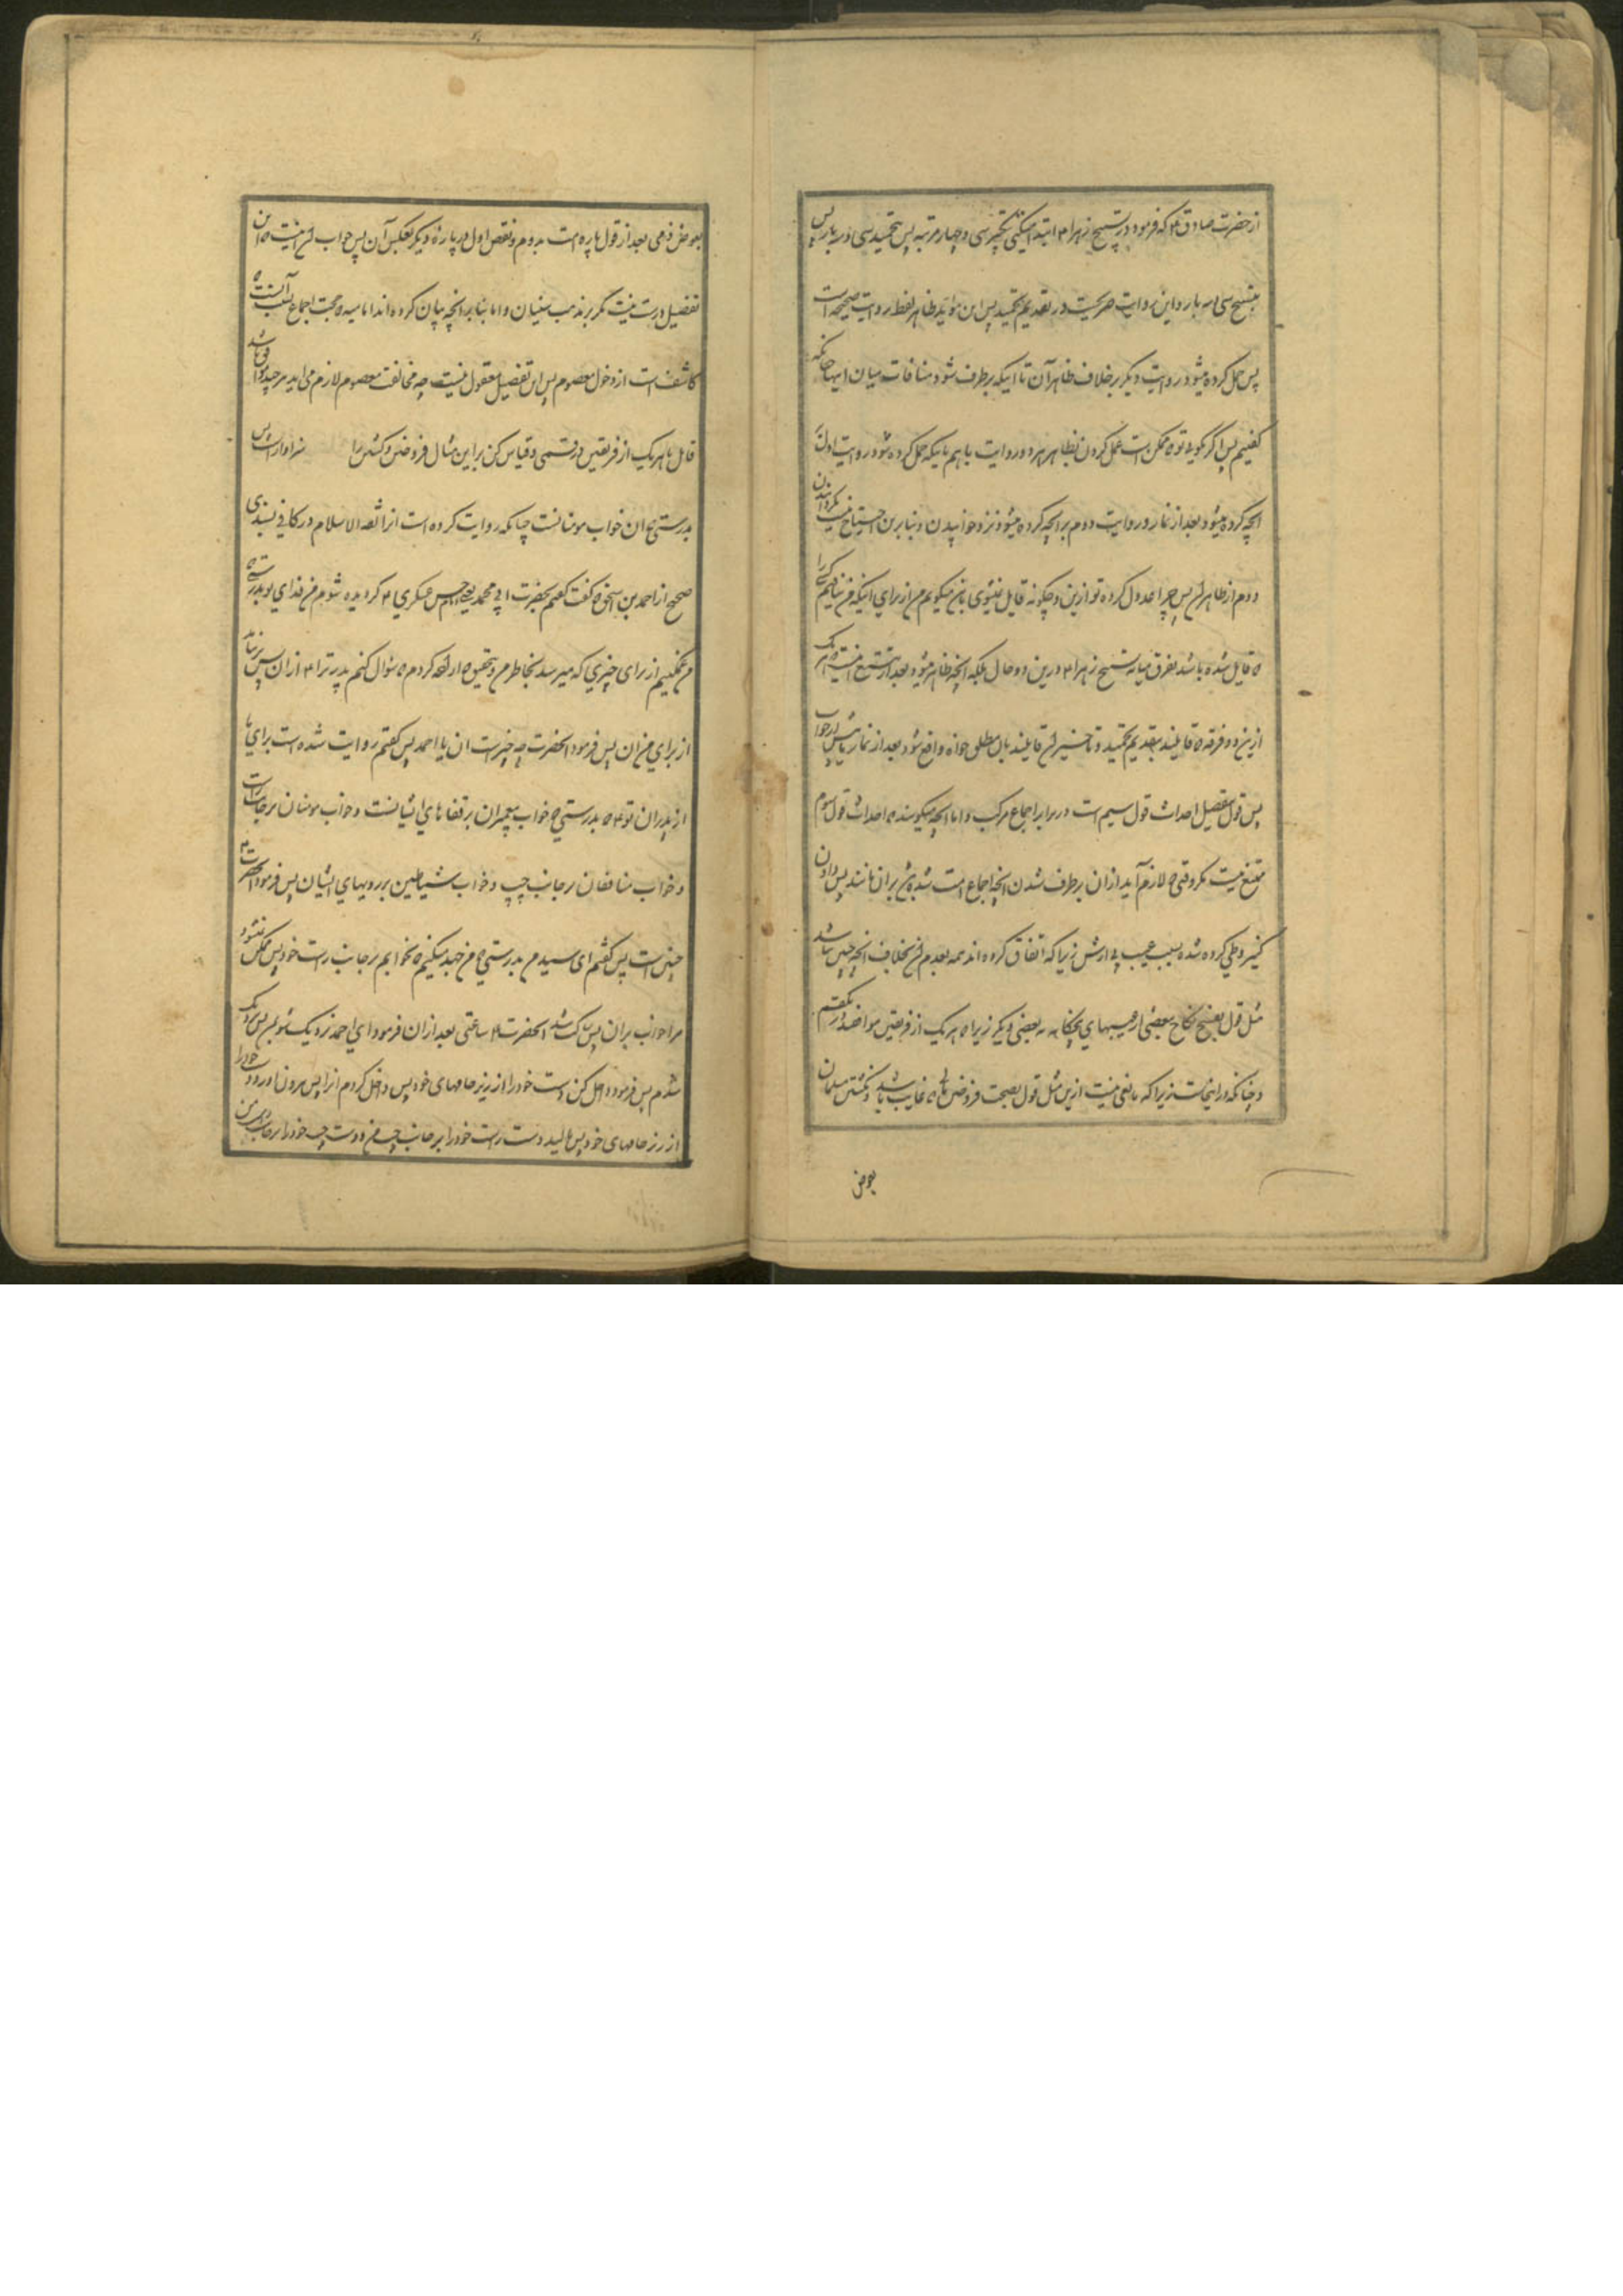 از حضرت صادق ع که فرمود در تسبیح زهرا ع ابتدا میکنی بتکبیر سی و چهار مرتبه پس بتحمید سی و سه بار پس
بتسبیح سی و سه بار و این روایت صریحست در تقدیم تحمید پس این مؤید ظاهر لفظ روایت صحیحه است
پس حمل کرده میشود روایت دیگر بر خلاف ظاهر آن تا اینکه برطرف شود منافات میان اینها چنانکه
گفتیم پس اگر بگویی تو که ممکن است عمل کردن بظاهر هر دو روایت با هم باینکه حمل کرده شود روایت اول
بر آنچه کرده میشود بعد از نماز و روایت دوم بر آنچه کرده میشود نزد خوابیدن و بنابرین احتیاج نیست بگردانیدن
دوم از ظاهر آن پس چرا عدول کرده تو ازین و چگونه قایل نشوی باین میگویم من از برای اینکه من نیافتم کسی را
که قایل شده باشد بفرق میانه تسبیح زهرا ع درین دو حال بلکه آنچه ظاهر میشود بعد از تتبع اینست که هر یک
ازین دو فرقه که قایلند بتقدیم تحمید و تاخیر آن قایلند بآن مطلق خواه واقع شود بعد از نماز یا پیش از خواب
پس قول بتفصیل احداث قول سیم است در برابر اجماع مرکب و اما آنچه میگویند که احداث قول سوم
ممتنع نیست مگر وقتی که لازم آید از آن برطرف شدن آنچه اجماع امت شده بر آن مانند پس دادن
کنیز وطی کرده شده بسبب عیب بی ارش زیرا که اتفاق کرده اند همه بعدم آن بخلاف آنچه چنین نباشد
مثل قول بفسخ نکاح ببعضی از عیبهای پنجگانه نه بعضی دیگر زیرا که هر یک از فریقین موافقند در یکقسم
و چنانکه در اینجاست زیرا که مانعی نیست ازین مثل قول بصحت فروختن مالی که غایب باشد و نکشتن مسلمان
بعوض
بعوض ذمی بعد از قول پاره امت بدوم و نقض اول و پاره دیگر بعکس آن پس جواب آن اینست که این
تفصیل درست نیست مگر بر مذهب سنیان و اما بنابر آنچه بیان کرده اند امامیه که حجت اجماع بسبب آنست که
کاشف است از دخول معصوم پس این تفصیل معقول نیست چه مخالفت معصوم لازم می آید هر چند موافق باشد
قایل با هر یک از فریقین در قسمی و قیاس کن بر این مثال فروختن و کشتن را سزاوار است پس
بدرستی که آن خواب مومنانست چنانکه روایت کرده است آنرا ثقة الاسلام در کافی بسندی
صحیح از احمد بن اسحق که گفت گفتم بحضرت ابی محمد یعنی امام حسن عسکری ع گردیده شوم من فدای تو بدرستی که
من غمگینم از برای چیزی که میرسد بخاطر من و بتحقیق که اراده کردم که سؤال کنم پدر ترا ع از آن پس میسر نشد
از برای من آن پس فرمود آنحضرت چه چیزست آن یا احمد پس گفتم روایت شده است برای ما
از پدران تو ع که بدرستی که خواب پیغمبران بر قفاهای ایشانست و خواب مومنان بر جانب راست
و خواب منافقان بر جانب چپ و خواب شیاطین بر رویهای ایشان پس فرمود آنحضرت ع
چنین است پس گفتم ای سید من بدرستی که من جهد میکنم که بخوابم بر جانب راست خود پس ممکن نشود
مرا خواب بر آن پس ساکت شد آنحضرت ع ساعتی بعد از آن فرمود ای احمد نزدیک شو بمن پس نزدیک
شدم پس فرمود داخل کن دست خود را از زیر جامهای خود پس داخل کردم آنرا پس بیرون آورد دست خود را
از زیر جامهای خود پس مالید دست راست خود را بر جانب چپ من و دست چپ خود را بر جانب راست من